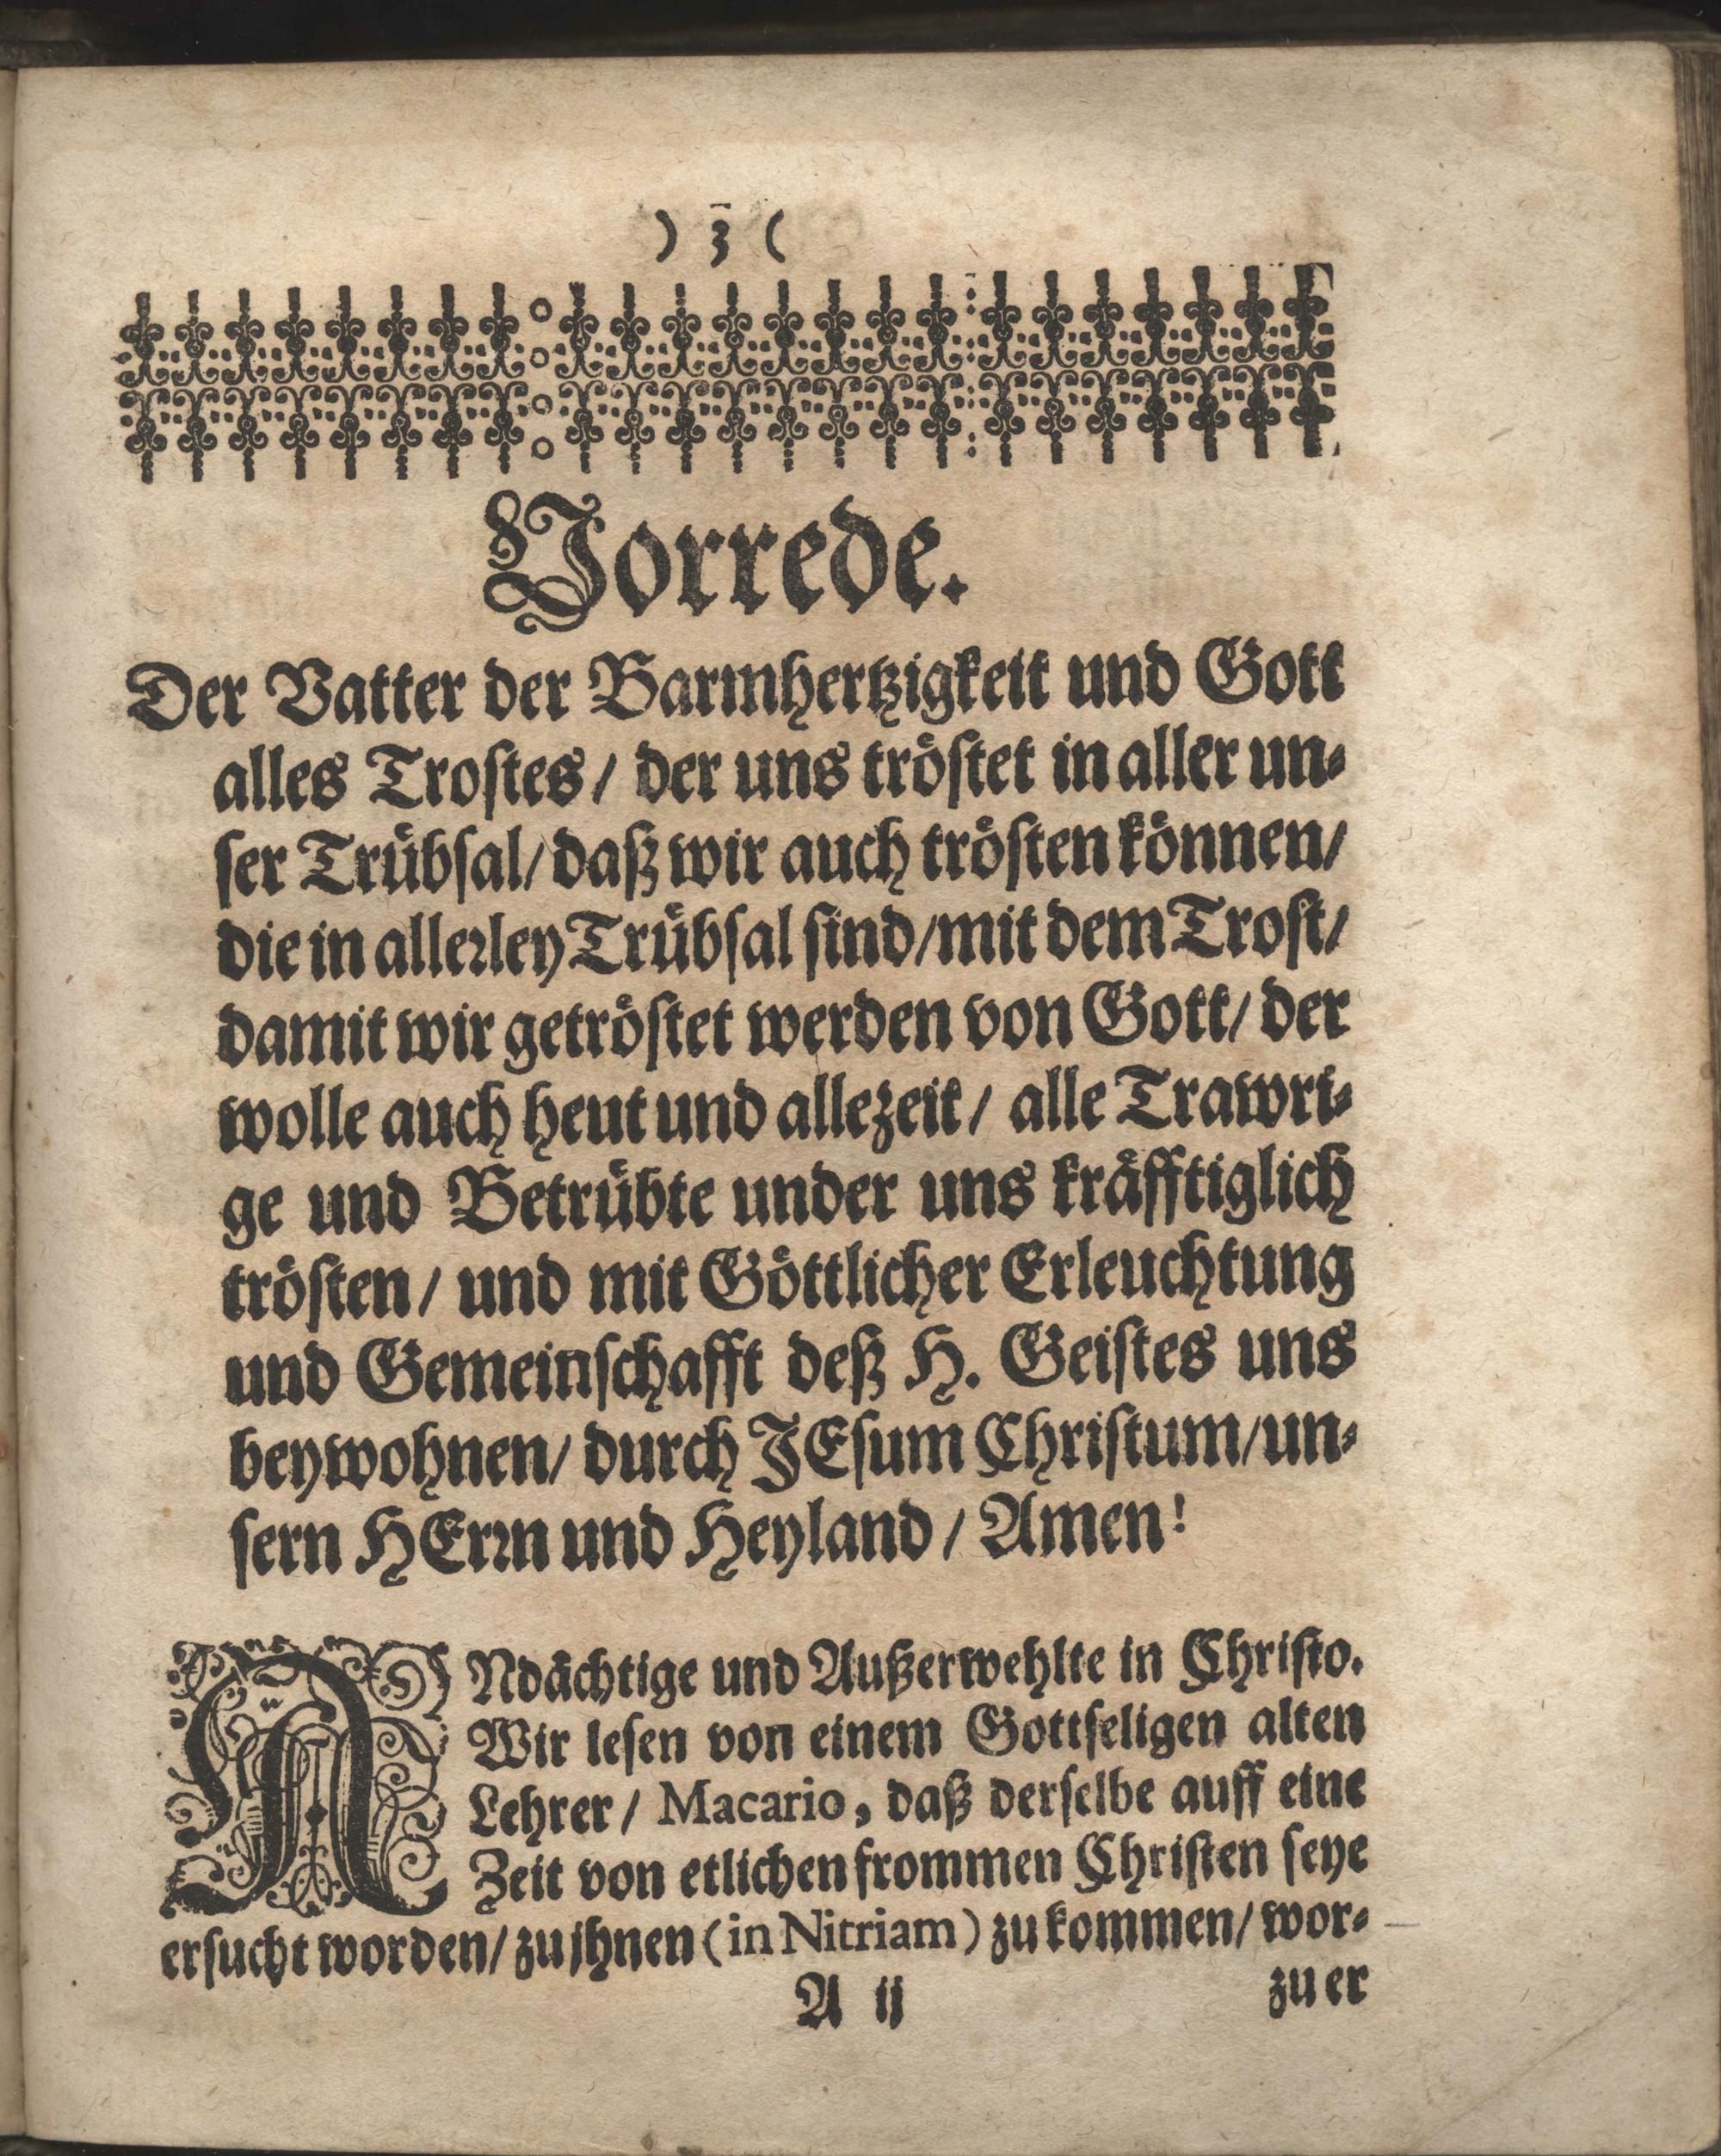 ) 3 (
Vorrede.
Der Vatter der Barmhertzigkeit und Gott
alles Trostes / der uns tröstet in aller un-
ser Trübsal / daß wir auch trösten können /
die in allerley Trübsal sind / mit dem Trost /
damit wir getröstet werden von Gott / der
wolle auch heut und allezeit / alle Trawri-
ge und Betrübte under uns kräfftiglich
trösten / und mit Göttlicher Erleuchtung
und Gemeinschafft deß H. Geistes uns
beywohnen / durch JEsum Christum / un-
sern HErrn und Heyland / Amen!
ANdächtige und Außerwehlte in Christo.
Wir lesen von einem Gottseligen alten
Lehrer / Macario, daß derselbe auff eine
Zeit von etlichen frommen Christen seye
ersucht worden / zu jhnen (in Nitriam) zu kommen / wor-
A ij
zu er